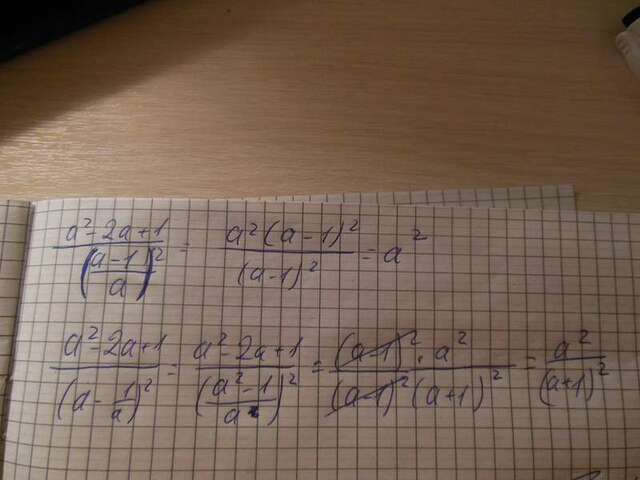 (a²-2a+1)/((a-1)/a)² = a²(a-1)²/(a-1)² = a²
(a²-2a+1)/(a-1/a)² = (a²-2a+1)/((a²-1)/a)² = (a-1)²·a²/(a-1)²(a+1)² = a²/(a+1)²